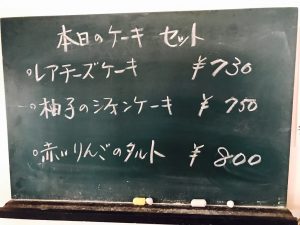 本日のケーキ セット
○レアチーズケーキ ¥730
○柚子のシフォンケーキ ¥750
○赤いりんごのタルト ¥800